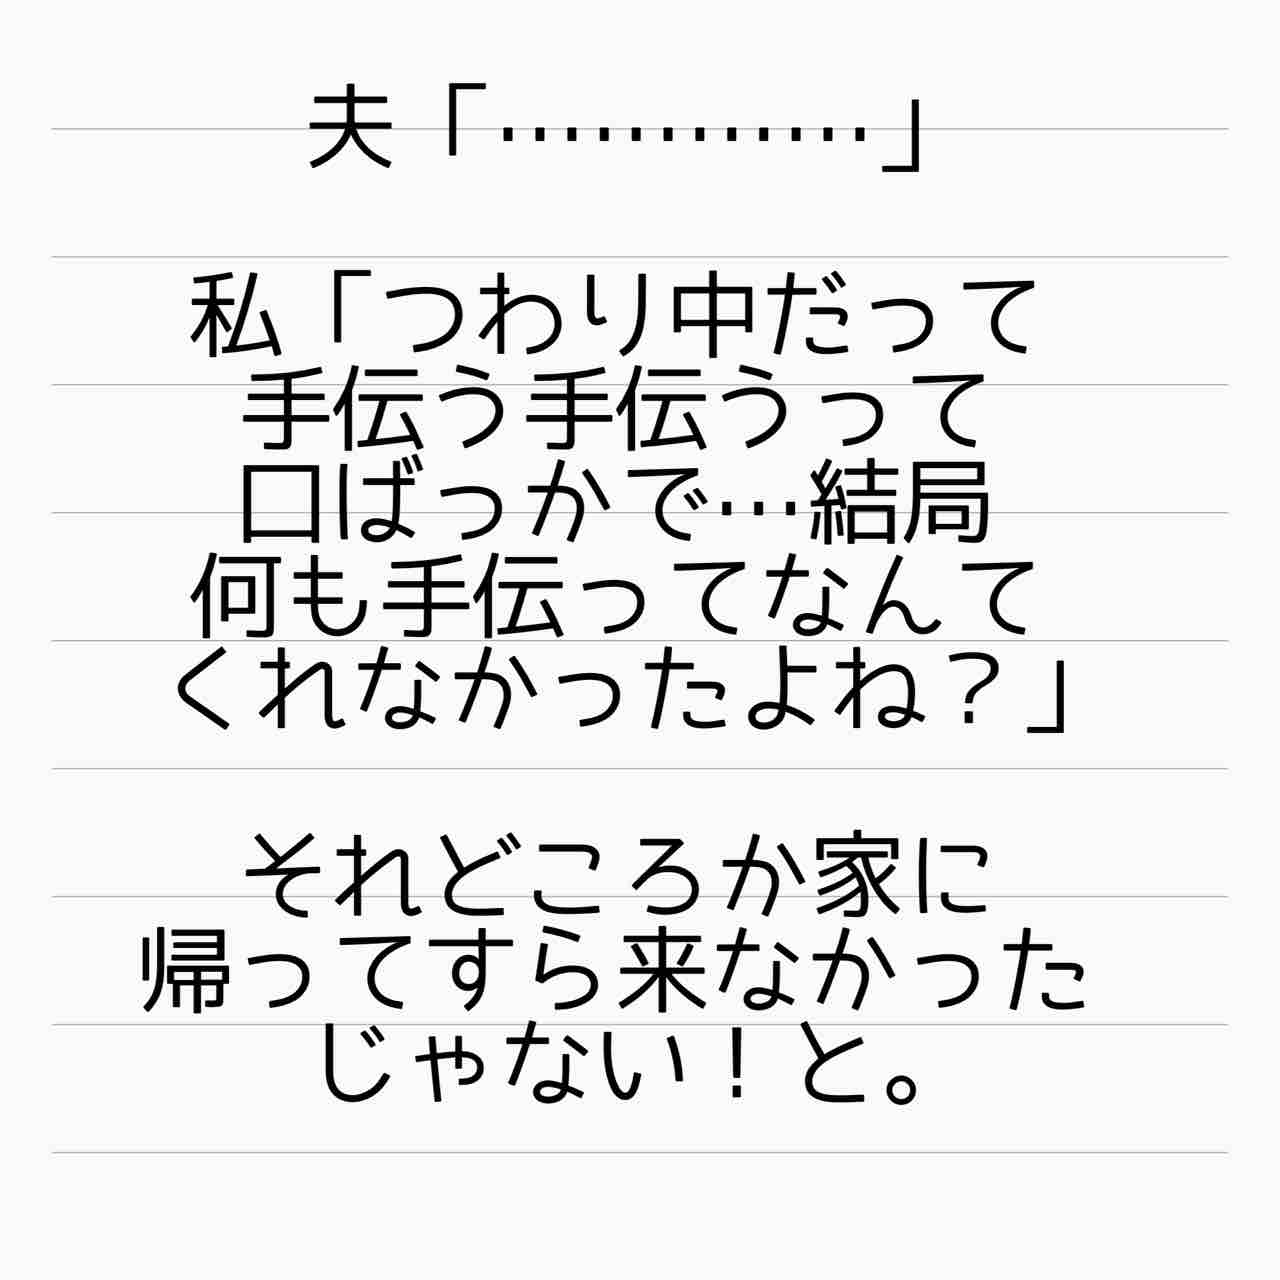 夫「…………」
私「つわり中だって
手伝う手伝うって
口ばっかで…結局
何も手伝ってなんて
くれなかったよね？」
それどころか家に
帰ってすら来なかった
じゃない！と。